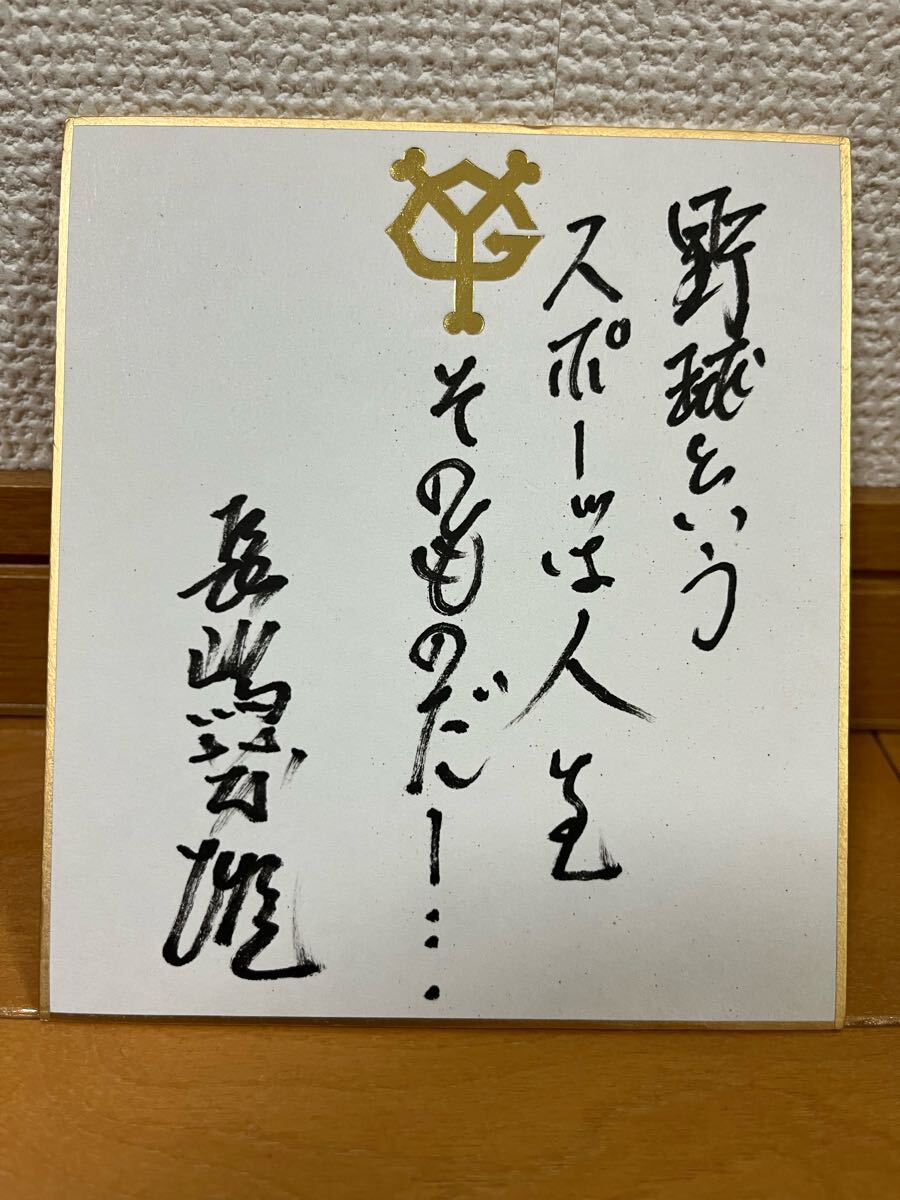 野球という
スポーツは人生
そのものだー…
長嶋茂雄
YG